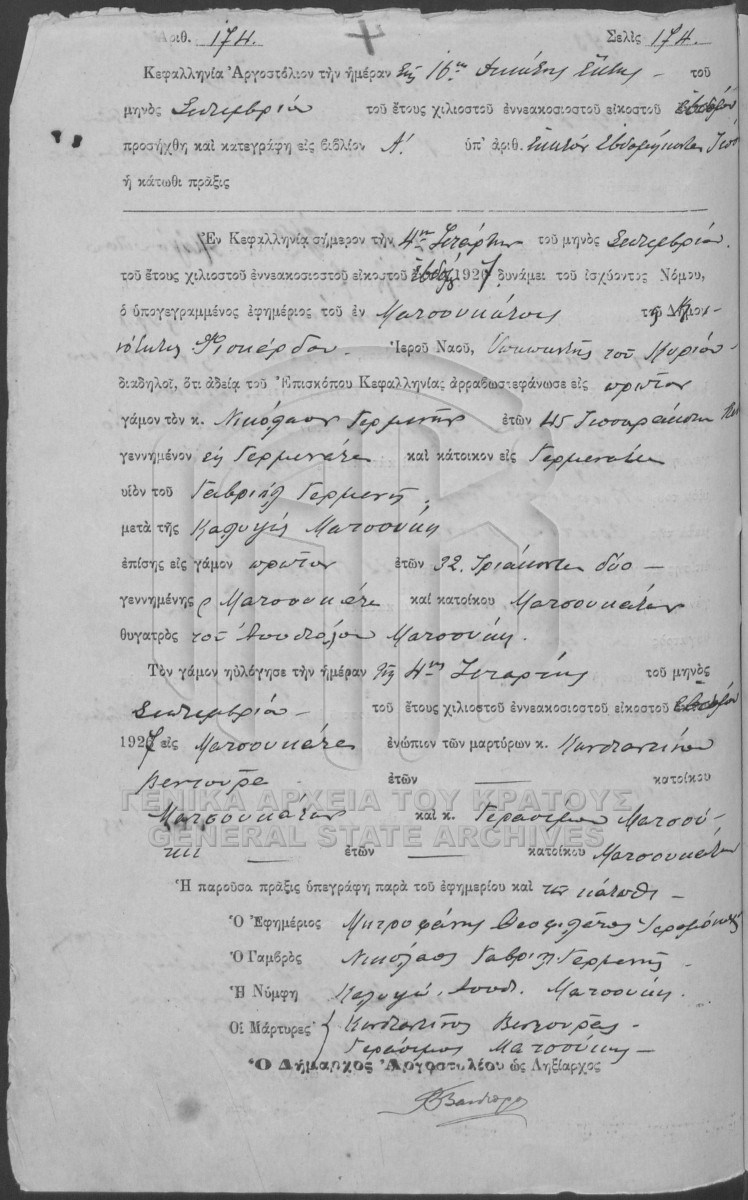 Ἀριθ. 174. Σελὶς 174.
Κεφαλληνία Ἀργοστόλιον τὴν ἡμέραν τῇ 16ῃ Δεκάτῃ Ἕκτῃ τοῦ
μηνὸς Σεπτεμβρίου τοῦ ἔτους χιλιοστοῦ ἐννεακοσιοστοῦ εἰκοστοῦ ἑβδόμου
προσήχθη καὶ κατεγράφη εἰς βιβλίον Α! ὑπ' ἀριθ. Ἑκατὸν Ἑβδομήκοντα
ἡ κάτωθι πρᾶξις
Ἐν Κεφαλληνίᾳ σήμερον τὴν 4ην Τετάρτην τοῦ μηνὸς Σεπτεμβρίου
τοῦ ἔτους χιλιοστοῦ ἐννεακοσιοστοῦ εἰκοστοῦ ἑβδόμου 1927 δυνάμει τοῦ ἰσχύοντος Νόμου,
ὁ ὑπογεγραμμένος ἐφημέριος τοῦ ἐν Ματσουκάτοις τῆς Κοι-
νότητος Φισκάρδου. Ἱεροῦ Ναοῦ, Ὑπαπαντῆς τοῦ Κυρίου
διαδηλοῖ, ὅτι ἀδείᾳ τοῦ Ἐπισκόπου Κεφαλληνίας ἀρραβωστεφάνωσε εἰς πρῶτον
γάμον τὸν κ. Νικόλαον Γερμενῆν ἐτῶν 45 Τεσσαράκοντα
γεννημένον εἰς Γερμενάτα καὶ κάτοικον εἰς Γερμενάτα
υἱὸν τοῦ Γαβριὴλ Γερμενῆ.
μετὰ τῆς Καλυψώς Ματσούκη
ἐπίσης εἰς γάμον πρῶτον ἐτῶν 32 Τριάκοντα δύο –
γεννημένης Ματσουκάτα καὶ κατοίκου Ματσουκάτων
θυγατρὸς τοῦ Ἀποστόλου Ματσούκη.
Τὸν γάμον ηὐλόγησε τὴν ἡμέραν τῆς 4ης Τετάρτης τοῦ μηνὸς
Σεπτεμβρίου – τοῦ ἔτους χιλιοστοῦ ἐννεακοσιοστοῦ εἰκοστοῦ ἑβδόμου
1927 εἰς Ματσουκάτα ἐνώπιον τῶν μαρτύρων κ. Κωνσταντίνου
Βεντούρα ἐτῶν — κατοίκου
Ματσουκάτων καὶ κ. Γερασίμου Ματσού-
κη — ἐτῶν — κατοίκου Ματσουκάτων
Ἡ παροῦσα πρᾶξις ὑπεγράφη παρὰ τοῦ ἐφημερίου καὶ τῶν κάτωθι –
Ὁ Ἐφημέριος Μητροφάνης Θεοφιλάτος Ἱερομόναχος
Ὁ Γαμβρὸς Νικόλαος Γαβριὴλ Γερμενῆς.
Ἡ Νύμφη Καλυψώ Αποστ. Ματσούκη.
Οἱ Μάρτυρες Κωνσταντῖνος Βεντούρας –
Γεράσιμος Ματσούκης –
Ὁ Δήμαρχος Ἀργοστολίου ὡς Ληξίαρχος
ΓΕΝΙΚΑ ΑΡΧΕΙΑ ΤΟΥ ΚΡΑΤΟΥΣ
GENERAL STATE ARCHIVES